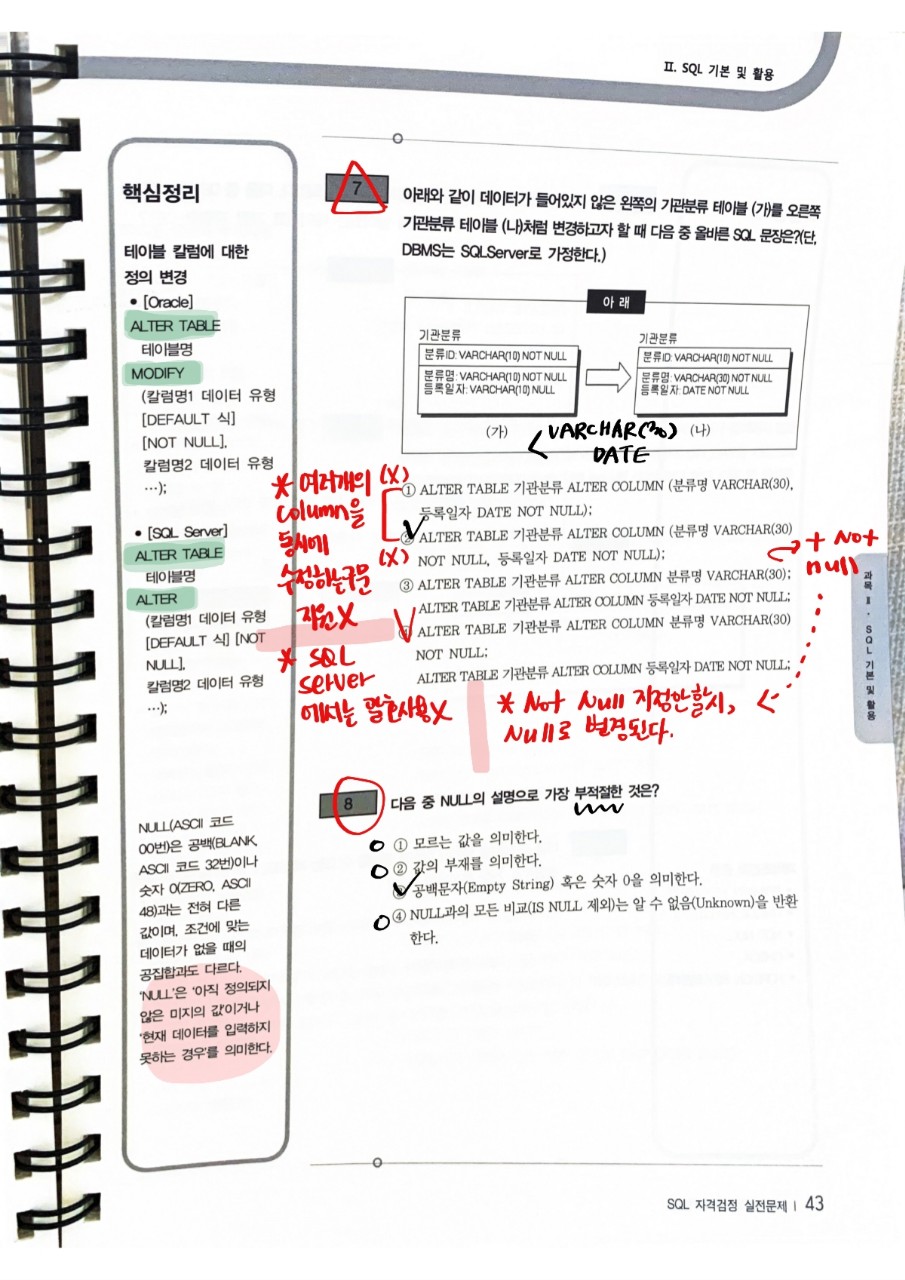 II. SQL 기본 및 활용
핵심정리
테이블 칼럼에 대한
정의 변경
• [Oracle]
ALTER TABLE
테이블명
MODIFY
(칼럼명1 데이터 유형
[DEFAULT 식]
[NOT NULL],
칼럼명2 데이터 유형
…);
• [SQL Server]
ALTER TABLE
테이블명
ALTER
(칼럼명1 데이터 유형
[DEFAULT 식] [NOT
NULL],
칼럼명2 데이터 유형
…);
NULL(ASCII 코드
00번)은 공백(BLANK,
ASCII 코드 32번)이나
숫자 0(ZERO, ASCII
48)과는 전혀 다른
값이며, 조건에 맞는
데이터가 없을 때의
공집합과도 다르다.
'NULL'은 '아직 정의되지
않은 미지의 값'이거나
'현재 데이터를 입력하지
못하는 경우'를 의미한다.
7
아래와 같이 데이터가 들어있지 않은 왼쪽의 기관분류 테이블 (가)를 오른쪽
기관분류 테이블 (나)처럼 변경하고자 할 때 다음 중 올바른 SQL 문장은?(단,
DBMS는 SQLServer로 가정한다.)
아 래
기관분류
분류ID: VARCHAR(10) NOT NULL
분류명: VARCHAR(10) NOT NULL
등록일자: VARCHAR(10) NULL
(가)
기관분류
분류ID: VARCHAR(10) NOT NULL
분류명: VARCHAR(30) NOT NULL
등록일자: DATE NOT NULL
(나)
VARCHAR(30)
DATE
① ALTER TABLE 기관분류 ALTER COLUMN (분류명 VARCHAR(30),
등록일자 DATE NOT NULL);
② ALTER TABLE 기관분류 ALTER COLUMN (분류명 VARCHAR(30)
NOT NULL, 등록일자 DATE NOT NULL);
③ ALTER TABLE 기관분류 ALTER COLUMN 분류명 VARCHAR(30);
ALTER TABLE 기관분류 ALTER COLUMN 등록일자 DATE NOT NULL;
④ ALTER TABLE 기관분류 ALTER COLUMN 분류명 VARCHAR(30)
NOT NULL;
ALTER TABLE 기관분류 ALTER COLUMN 등록일자 DATE NOT NULL;
* 여러개의 (X)
column을
동시에
수정하는구문 (X)
지원X
* SQL
server
에서는 괄호사용X
+ Not
null
* Not Null 지정안할시,
Null로 변경된다.
과목 II · SQL 기본 및 활용
8
다음 중 NULL의 설명으로 가장 부적절한 것은?
① 모르는 값을 의미한다.
② 값의 부재를 의미한다.
③ 공백문자(Empty String) 혹은 숫자 0을 의미한다.
④ NULL과의 모든 비교(IS NULL 제외)는 알 수 없음(Unknown)을 반환
한다.
SQL 자격검정 실전문제 | 43